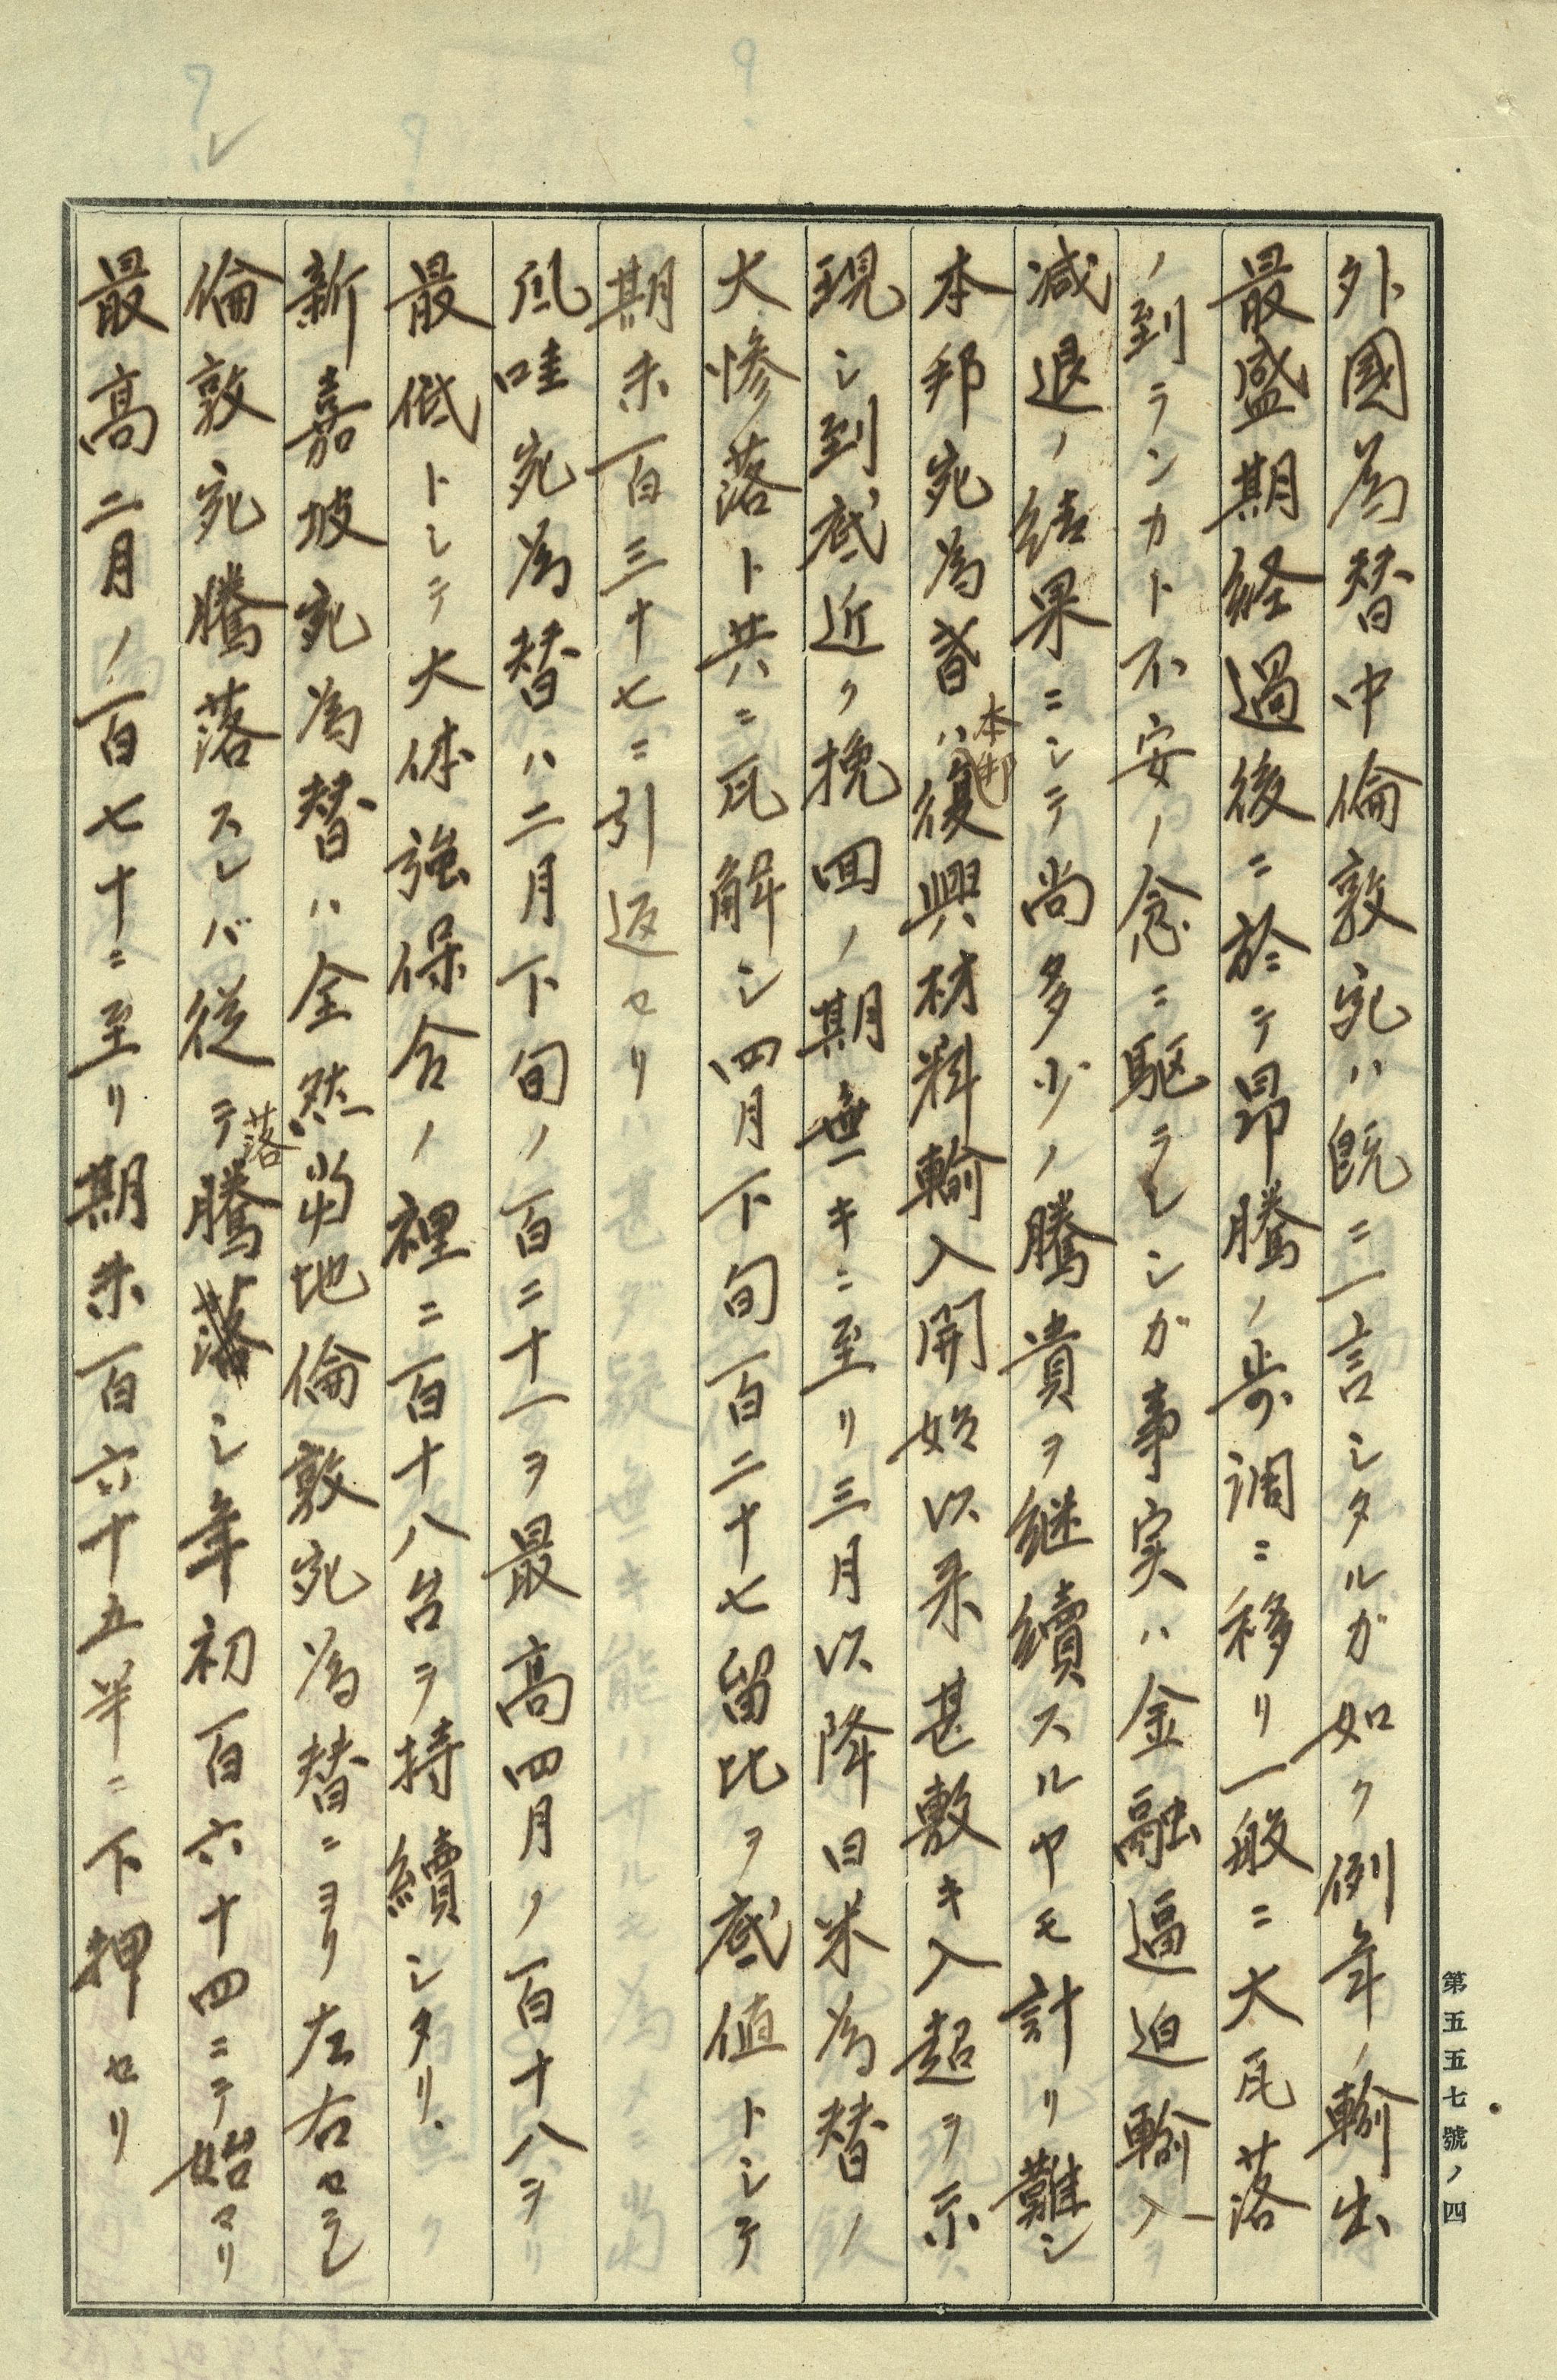 外國為替中倫敦宛ハ既ニ一言シタルガ如ク例年ノ輸出
最盛期経過後ニ於テ昂騰ノ歩調ニ移リ一般ニ大瓦落
ノ到ランカト不安ノ念ニ駆ラレシガ事実ハ金融逼迫輸入
減退ノ結果ニシテ尚多少ノ騰貴ヲ継續スルヤモ計リ難シ
本邦宛為替ハ本邦復興材料輸入開始以来甚敷キ入超ヲ示
現シ到底近ク挽回ノ期無キニ至リ三月以降日米為替ノ
大惨落ト共ニ瓦解シ四月下旬百二十七留比ヲ底値トシテ
期末百三十七ニ引返セリ
爪哇宛為替ハ二月下旬ノ百二十一ヲ最高四月ノ百十八ヲ
最低トシテ大体強保合ノ裡ニ百十八台ヲ持續シタリ
新嘉坡宛為替ハ全然当地倫敦宛為替ニヨリ左右セラレ
倫敦宛騰落スレバ従テ騰落シ年初百六十四ニテ始マリ
最高二月ノ百七十ニ至リ期末百六十五半ニ下押セリ
第五五七號ノ四